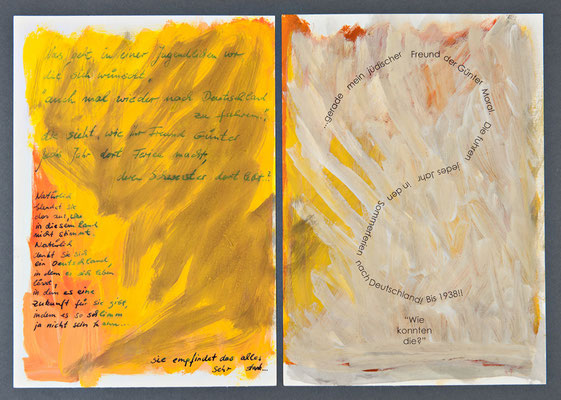 Was geht in einer Jugendlichen vor
die sich wünscht,
"auch mal wieder nach Deutschland
zu fahren!"
Sie sieht, wie ihr Freund Günter
jedes Jahr dort Ferien macht,
dort
Natürlich
blendet sie
das aus, was
in diesem Land
nicht stimmt.
Natürlich
denkt sie sich
ein Deutschland
in dem es sich leben
lässt,
in dem es eine
Zukunft für sie gibt,
indem es so schlimm
ja nicht sein kann...
sie empfindet das alles
sehr stark...
...gerade mein jüdischer Freund der Günter Moral! Die fuhren jedes Jahr in den Sommerferien nach Deutschland! Bis 1938!!
"Wie
konnten
die?"